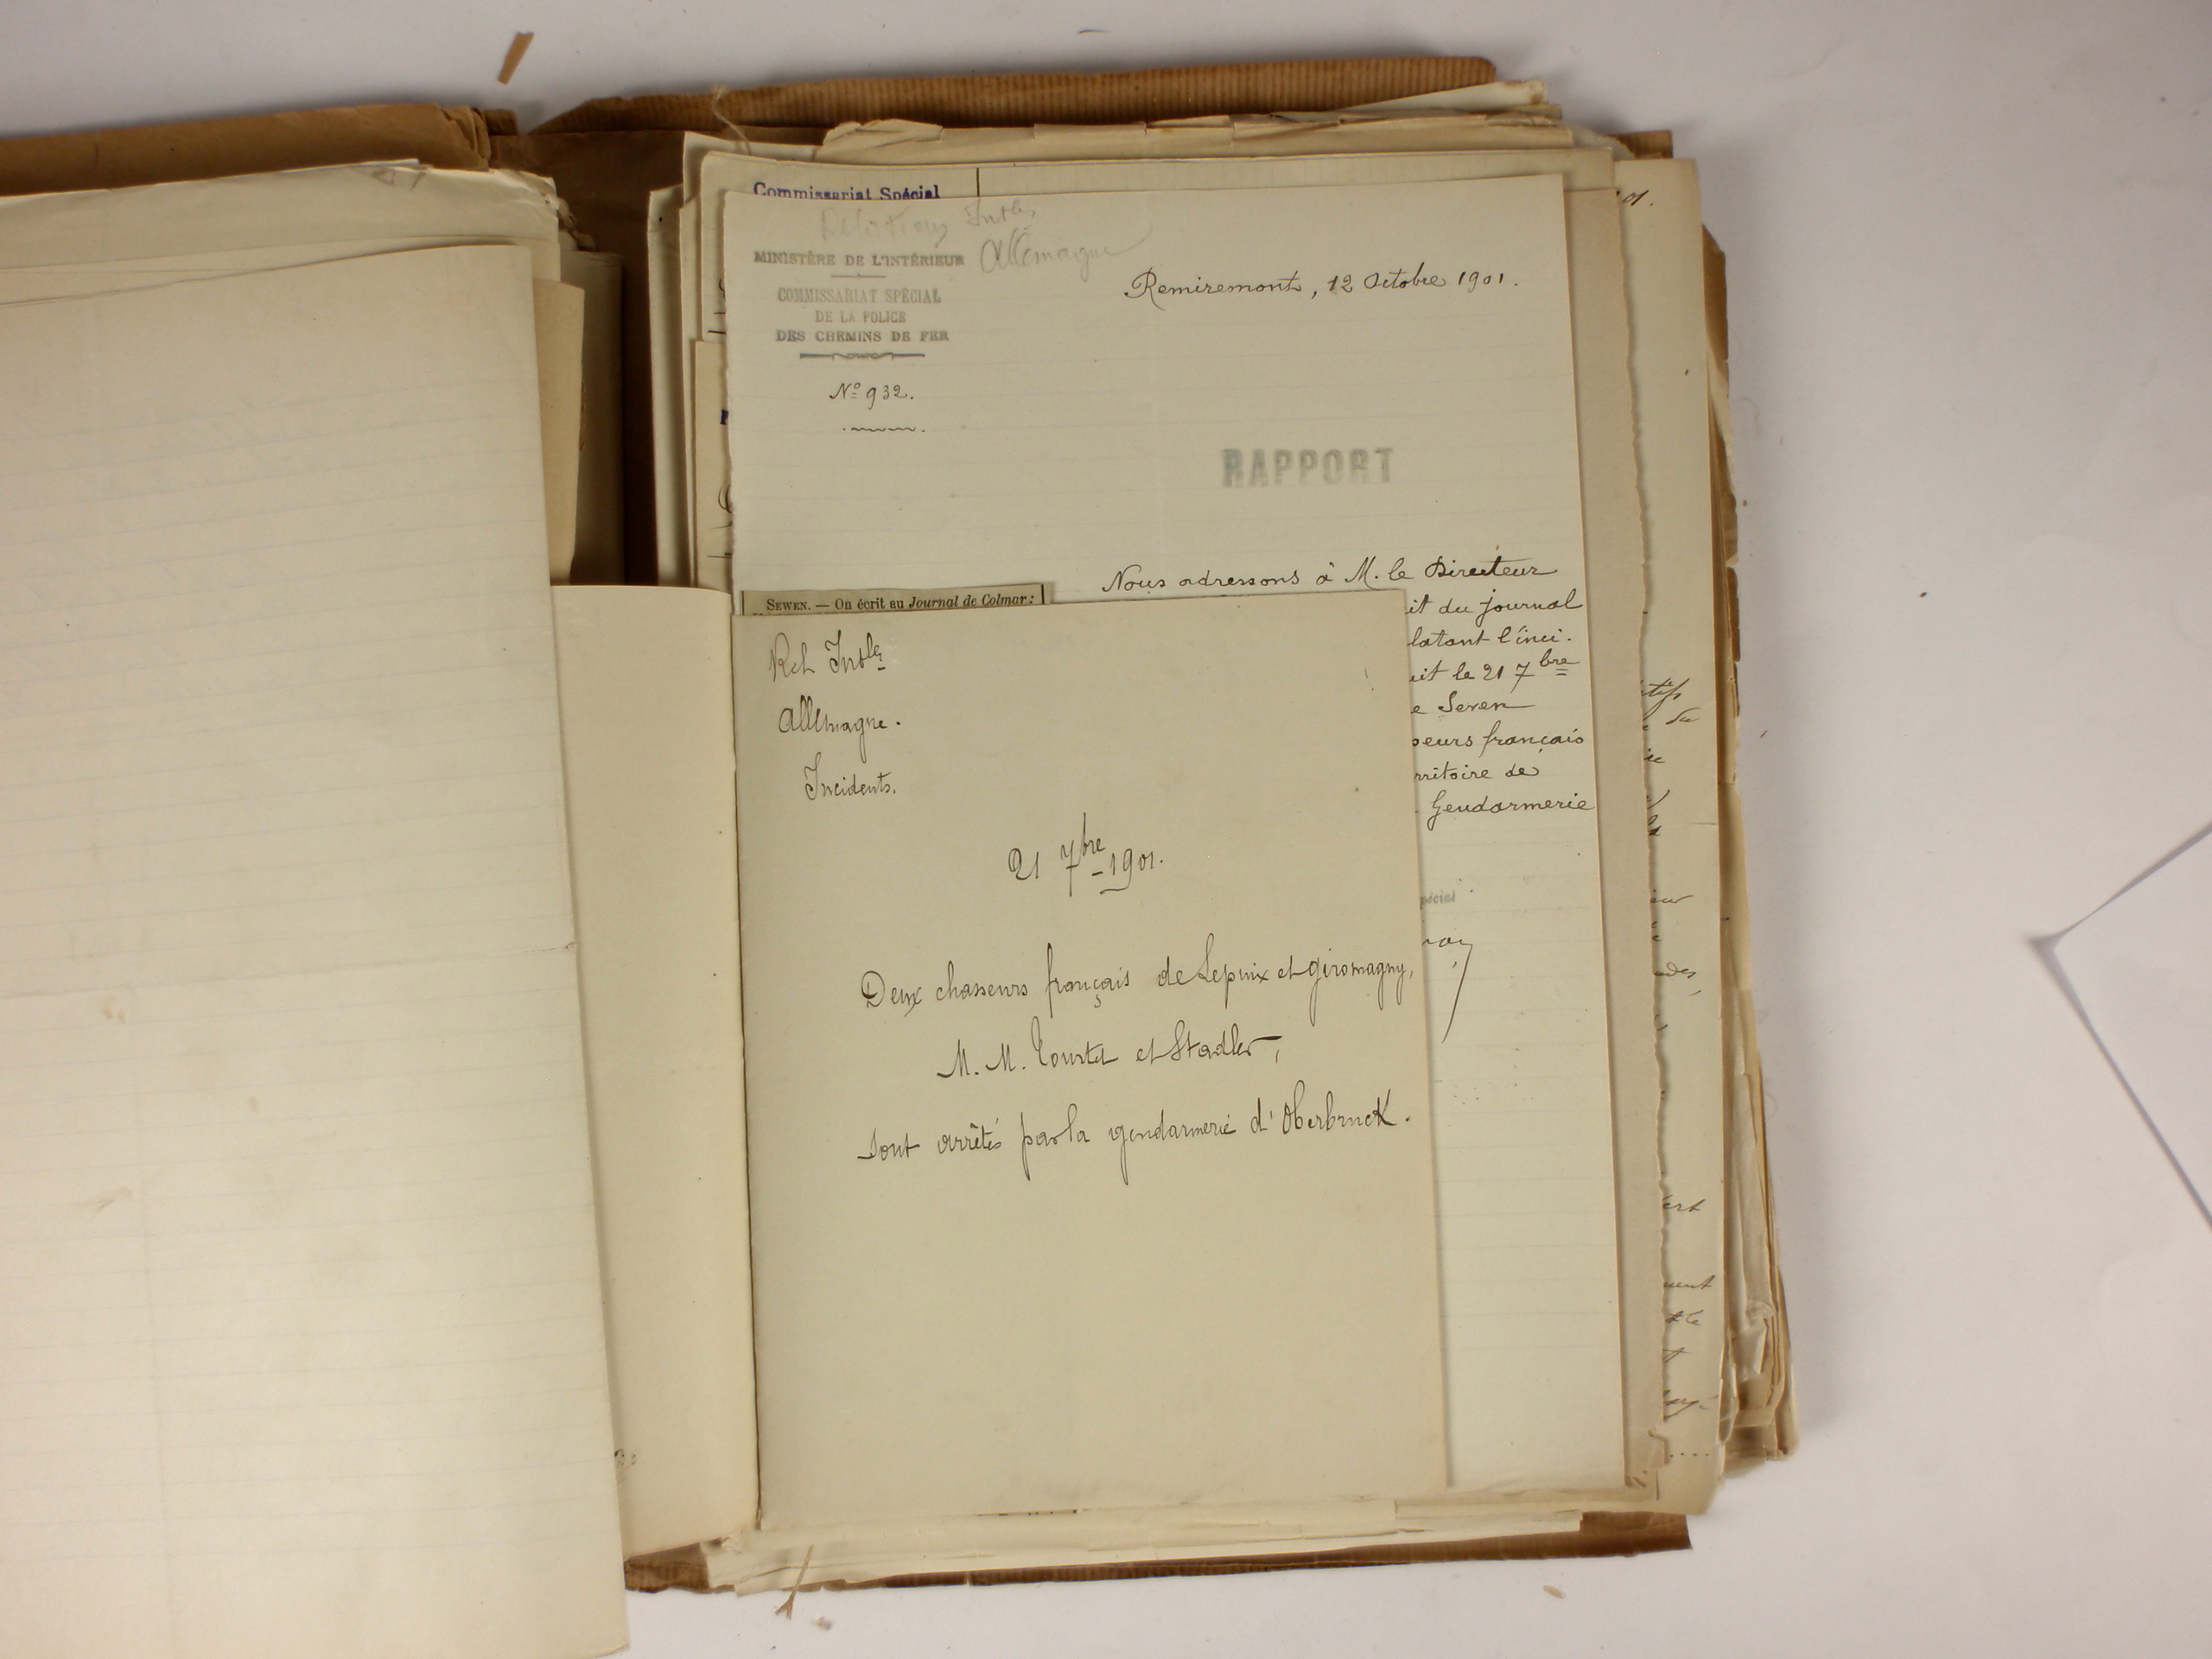 Commissariat Spécial
Relations Intles
Allemagne
MINISTÈRE DE L'INTÉRIEUR
COMMISSARIAT SPÉCIAL
DE LA POLICE
DES CHEMINS DE FER
Remiremont, 12 Octobre 1901.
Nº 932.
RAPPORT
Nous adressons à M. le Directeur
it du journal
latant l'inci-
uit le 21 7bre
e Seven
seurs français
rritoire de
Gendarmerie
pécial
SEWEN. — On écrit au Journal de Colmar :
Rel Intles
Allemagne.
Incidents.
21 7bre 1901.
Deux chasseurs français de Lepuix et Giromagny,
M. M. Courtet et Stadler,
sont arrêtés par la gendarmerie d'Oberbruck.